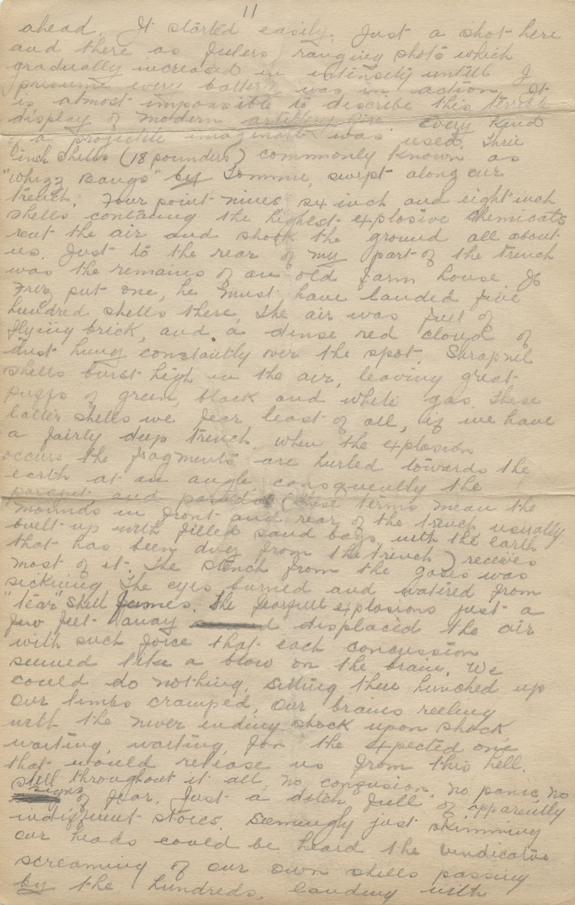 11
ahead. It started easily. Just a shot here
and there as feelers, ranging shots which
gradually increased in intensity untill I
presume every battery was in action. It
is almost impossible to describe this
display of modern artillery fire. Every kind
of a projectile imaginable was used. Three
inch shells (18 pounders) commonly known as
"Whizz Bangs" by Tommie, swept along our
trench. Four point nines six inch and eight inch
shells containing the highest explosive chemicals
rent the air and shook the ground all about
us. Just to the rear of my part of the trench
was the remains of an old farm house. If
Fritz put one, he must have landed five
hundred shells there. The air was full of
flying brick, and a dense red cloud of
dust hung constantly over the spot. Srapnel
shells burst high in the air, leaving great
puffs of green, black and white gas. These
latter shells we fear least of all, if we have
a fairly deep trench, when the explosion
occurs the fragments are hurled towards the
earth at an angle consequently the
parapet and parados (these terms mean the
mounds in front and rear of the trench usually
built up with filled sand bags, with the earth
that has been dug from the trench) receives
most of it. The stench from the gases was
sickening. The eyes burned and watered from
"tear" shell fumes. The fearful explosions just a
few feet away displaced the air
with such force that each concussion
seemed like a blow on the brain. We
could do nothing. Sitting there hunched up
our limbs cramped, our brains reeling
with the never ending shock upon shock,
waiting, waiting, for the expected one
that would release us from this hell.
Still throughout it all, no confusion, no panic, no
signs of fear. Just a ditch full of apparently
indifferent stoics. Seemingly just skimming
our heads could be heard the vindicative
screaming of our own shells passing
by the hundreds, landing with